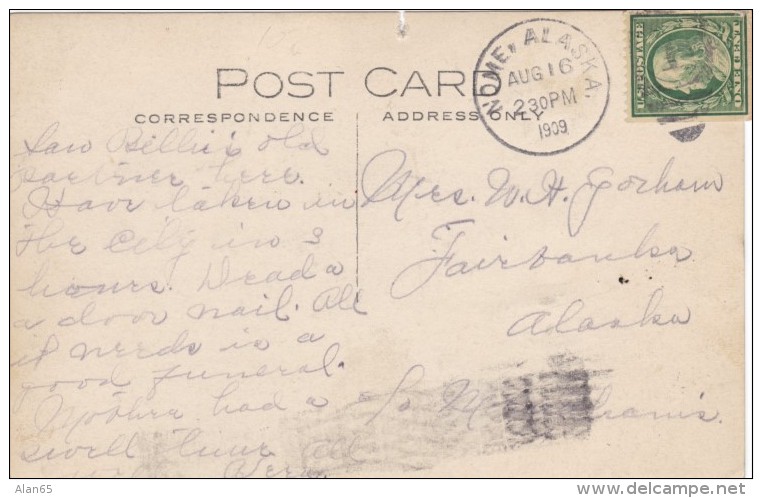 POST CARD
CORRESPONDENCE
ADDRESS ONLY
NOME, ALASKA.
AUG 16
2 30 PM
1909
U.S. POSTAGE
ONE CENT
Saw Billie's old
partner here.
Have taken in
the City in 3
hours. Dead as
a door nail. All
it needs is a
good funeral.
Mother had a
swell time all
Mrs. W. H. Gorham
Fairbanks
Alaska
c/o
Alan65
delcampe.net